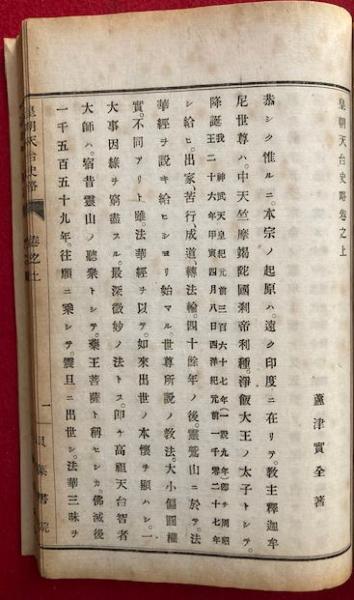 皇朝天台史略卷之上
蘆津實全著
恭シク惟ルニ。本宗ノ起原ハ。遠ク印度ニ在リテ。教主釋迦牟
尼世尊ハ。中天竺摩竭陀國刹帝利種。淨飯大王ノ太子トシテ。
降誕我神武天皇紀元前三百六十七年(一說九年)卽チ周昭
王二十六年甲寅四月八日西洋紀元前一千零二十七年
シ給ヒ。出家、苦行、成道、轉法輪。四十餘年ノ後。靈鷲山ニ於テ。法
華經ヲ說キ給ヒシヨリ始マル。世尊所說ノ教法。大小偏圓權
實。不同アリト雖。法華經ヲ以テ。如來出世ノ本懷ヲ顯ハシ。一
大事因緣ヲ窮盡スル。最深微妙ノ法トス。卽チ高祖天台智者
大師ハ。宿昔靈山ノ聽衆トシテ。藥王菩薩ト稱セシカ。佛滅後
一千五百五十九年。往願ニ乘シテ。震旦ニ出世シ。法華三昧ヲ
皇朝天台史略
卷之上
一